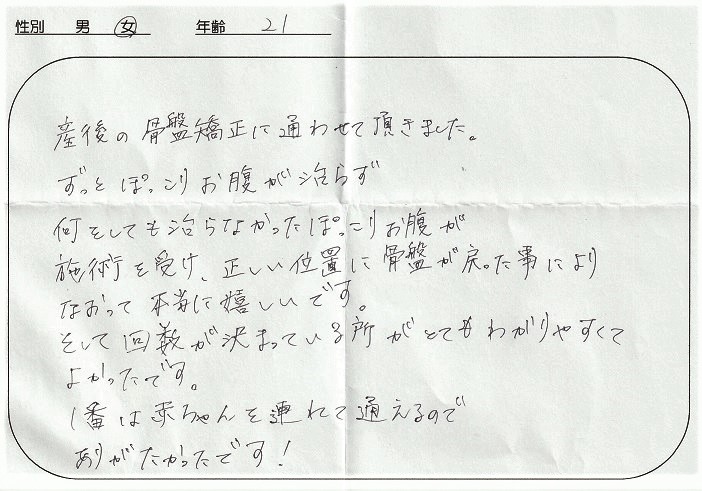 性別 男 女 年齢 21
産後の骨盤矯正に通わせて頂きました。
ずっとぽっこりお腹が治らず
何をしても治らなかったぽっこりお腹が
施術を受け、正しい位置に骨盤が戻った事により
なおって本当に嬉しいです。
そして回数が決まっている所がとてもわかりやすくて
よかったです。
1番は赤ちゃんを連れて通えるので
ありがたかったです!